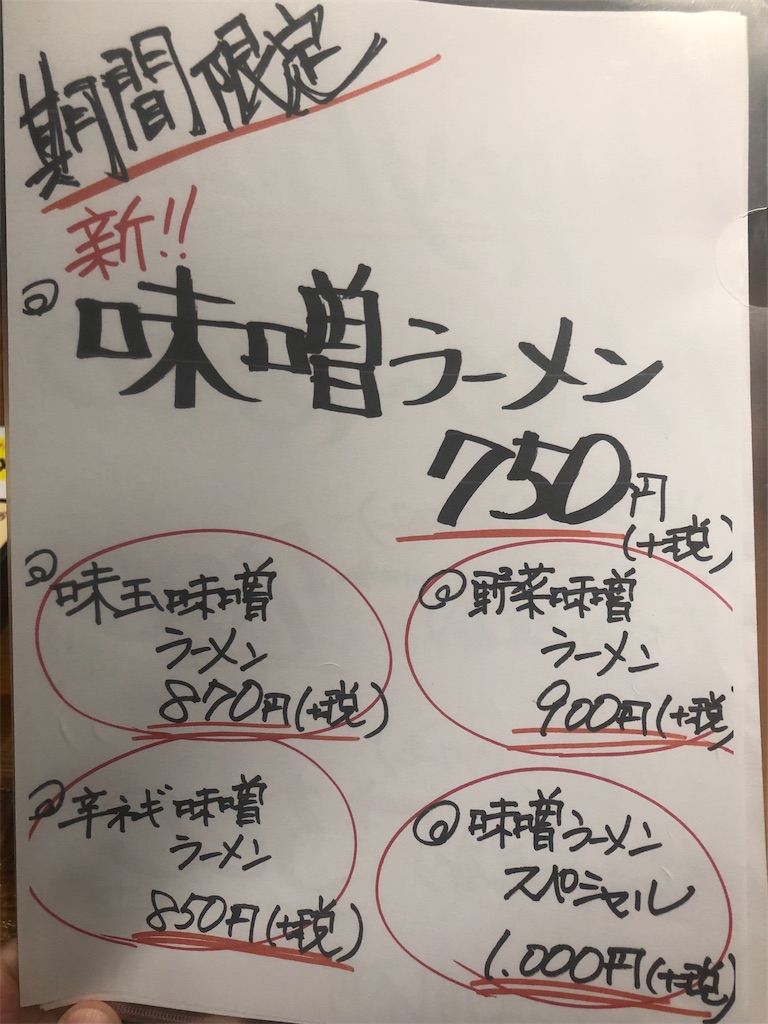 期間限定
新!!
味噌ラーメン
750円
(+税)
味玉味噌
ラーメン
870円(+税)
野菜味噌
ラーメン
900円(+税)
辛ネギ味噌
ラーメン
850円(+税)
味噌ラーメン
スペシャル
1.000円(+税)